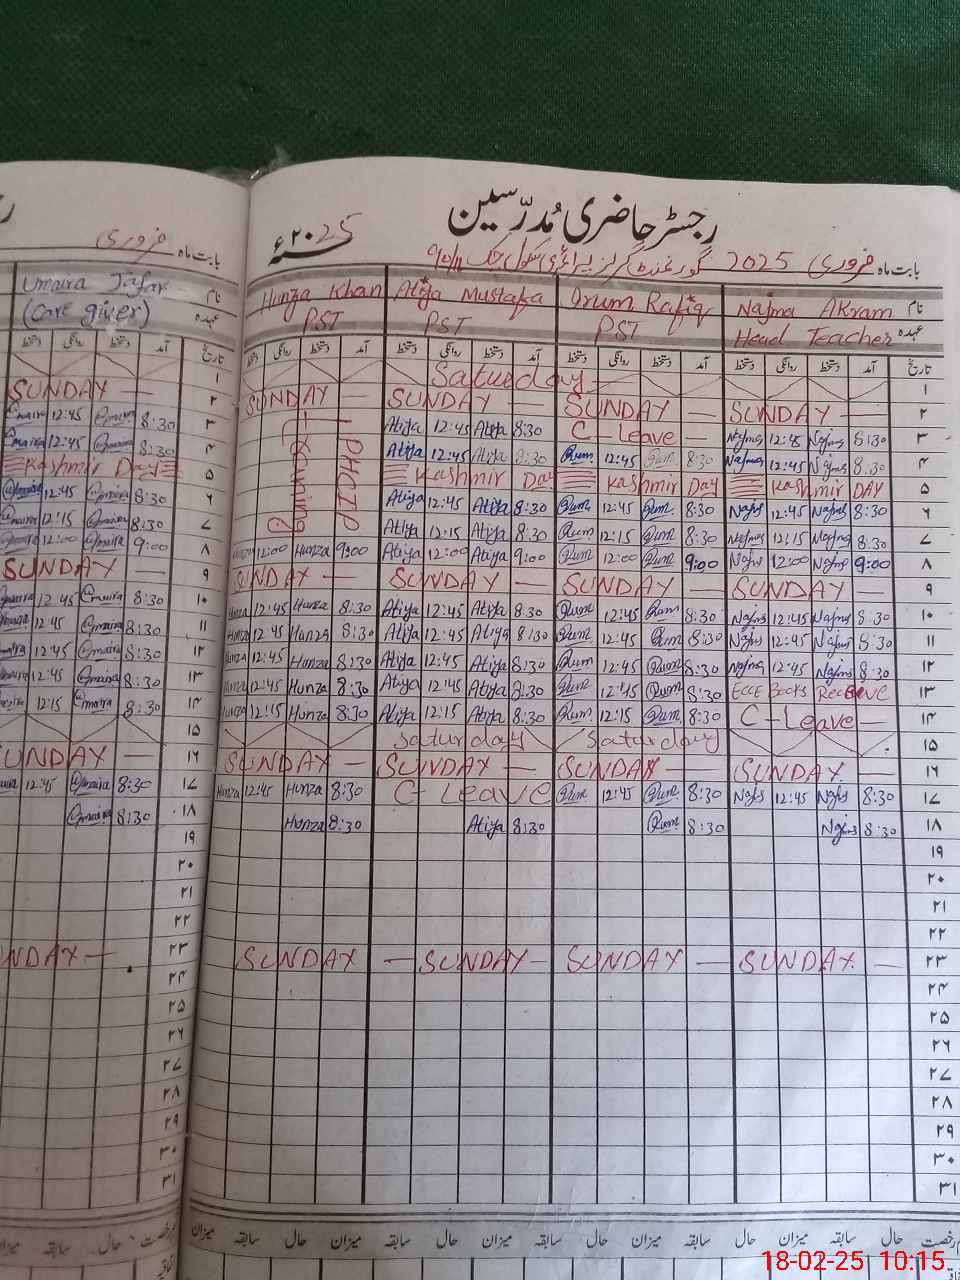 رجسٹر حاضری مُدرّسین
بابت ماہ فروری 2025 گورنمنٹ گرلز پرائمری سکول چک ۲۰25ء
بابت ماہ فروری
نام Najma Akram Irum Rafiq Atiya Mustafa Hunza Khan
عہدہ Head Teacher PST PST PST
نام Umaira Jafar
عہدہ (Care giver)
تاریخ آمد دستخط روانگی دستخط آمد دستخط روانگی دستخط آمد دستخط روانگی دستخط آمد دستخط روانگی دستخط
۱ Saturday
۲ SUNDAY — SUNDAY — SUNDAY — SUNDAY — SUNDAY —
۳ 8:30 Najma 12:45 Najma C-Leave — 8:30 Atiya 12:45 Atiya 8:30 Umaira 12:45 Umaira
۴ 8:30 Najma 12:45 Najma 8:30 Irum 12:45 Irum 8:30 Atiya 12:45 Atiya 8:30 Umaira 12:45 Umaira
LPHCIP Training
۵ Kashmir DAY Kashmir Day Kashmir Day Kashmir Day
۶ 8:30 Najma 12:45 Najma 8:30 Irum 12:45 Irum 8:30 Atiya 12:45 Atiya 8:30 Umaira 12:45 Umaira
۷ 8:30 Najma 12:15 Najma 8:30 Irum 12:15 Irum 8:30 Atiya 12:15 Atiya 8:30 Umaira 12:15 Umaira
۸ 9:00 Najma 12:00 Najma 9:00 Irum 12:00 Irum 9:00 Atiya 12:00 Atiya 9:00 Hunza 12:00 Hunza 9:00 Umaira 12:00 Umaira
۹ SUNDAY — SUNDAY — SUNDAY — SUNDAY — SUNDAY —
۱۰ 8:30 Najma 12:45 Najma 8:30 Irum 12:45 Irum 8:30 Atiya 12:45 Atiya 8:30 Hunza 12:45 Hunza 8:30 Umaira 12:45 Umaira
۱۱ 8:30 Najma 12:45 Najma 8:30 Irum 12:45 Irum 8:30 Atiya 12:45 Atiya 8:30 Hunza 12:45 Hunza 8:30 Umaira 12:45 Umaira
۱۲ 8:30 Najma 12:45 Najma 8:30 Irum 12:45 Irum 8:30 Atiya 12:45 Atiya 8:30 Hunza 12:45 Hunza 8:30 Umaira 12:45 Umaira
۱۳ ECCE Books Receive 8:30 Irum 12:45 Irum 8:30 Atiya 12:45 Atiya 8:30 Hunza 12:45 Hunza 8:30 Umaira 12:45 Umaira
۱۴ C-Leave — 8:30 Irum 12:15 Irum 8:30 Atiya 12:15 Atiya 8:30 Hunza 12:15 Hunza 8:30 Umaira 12:15 Umaira
۱۵ Saturday Saturday
۱۶ SUNDAY — SUNDAY — SUNDAY — SUNDAY — SUNDAY —
۱۷ 8:30 Najma 12:45 Najma 8:30 Irum 12:45 Irum C-Leave 8:30 Hunza 12:45 Hunza 8:30 Umaira 12:45 Umaira
۱۸ 8:30 Najma 8:30 Irum 8:30 Atiya 8:30 Hunza 8:30 Umaira
۱۹
۲۰
۲۱
۲۲
۲۳ SUNDAY — SUNDAY — SUNDAY — SUNDAY — SUNDAY —
۲۴
۲۵
۲۶
۲۷
۲۸
۲۹
۳۰
۳۱
رخصت حال سابقہ میزان حال سابقہ میزان حال سابقہ میزان حال سابقہ میزان
رخصت حال سابقہ میزان
18-02-25 10:15